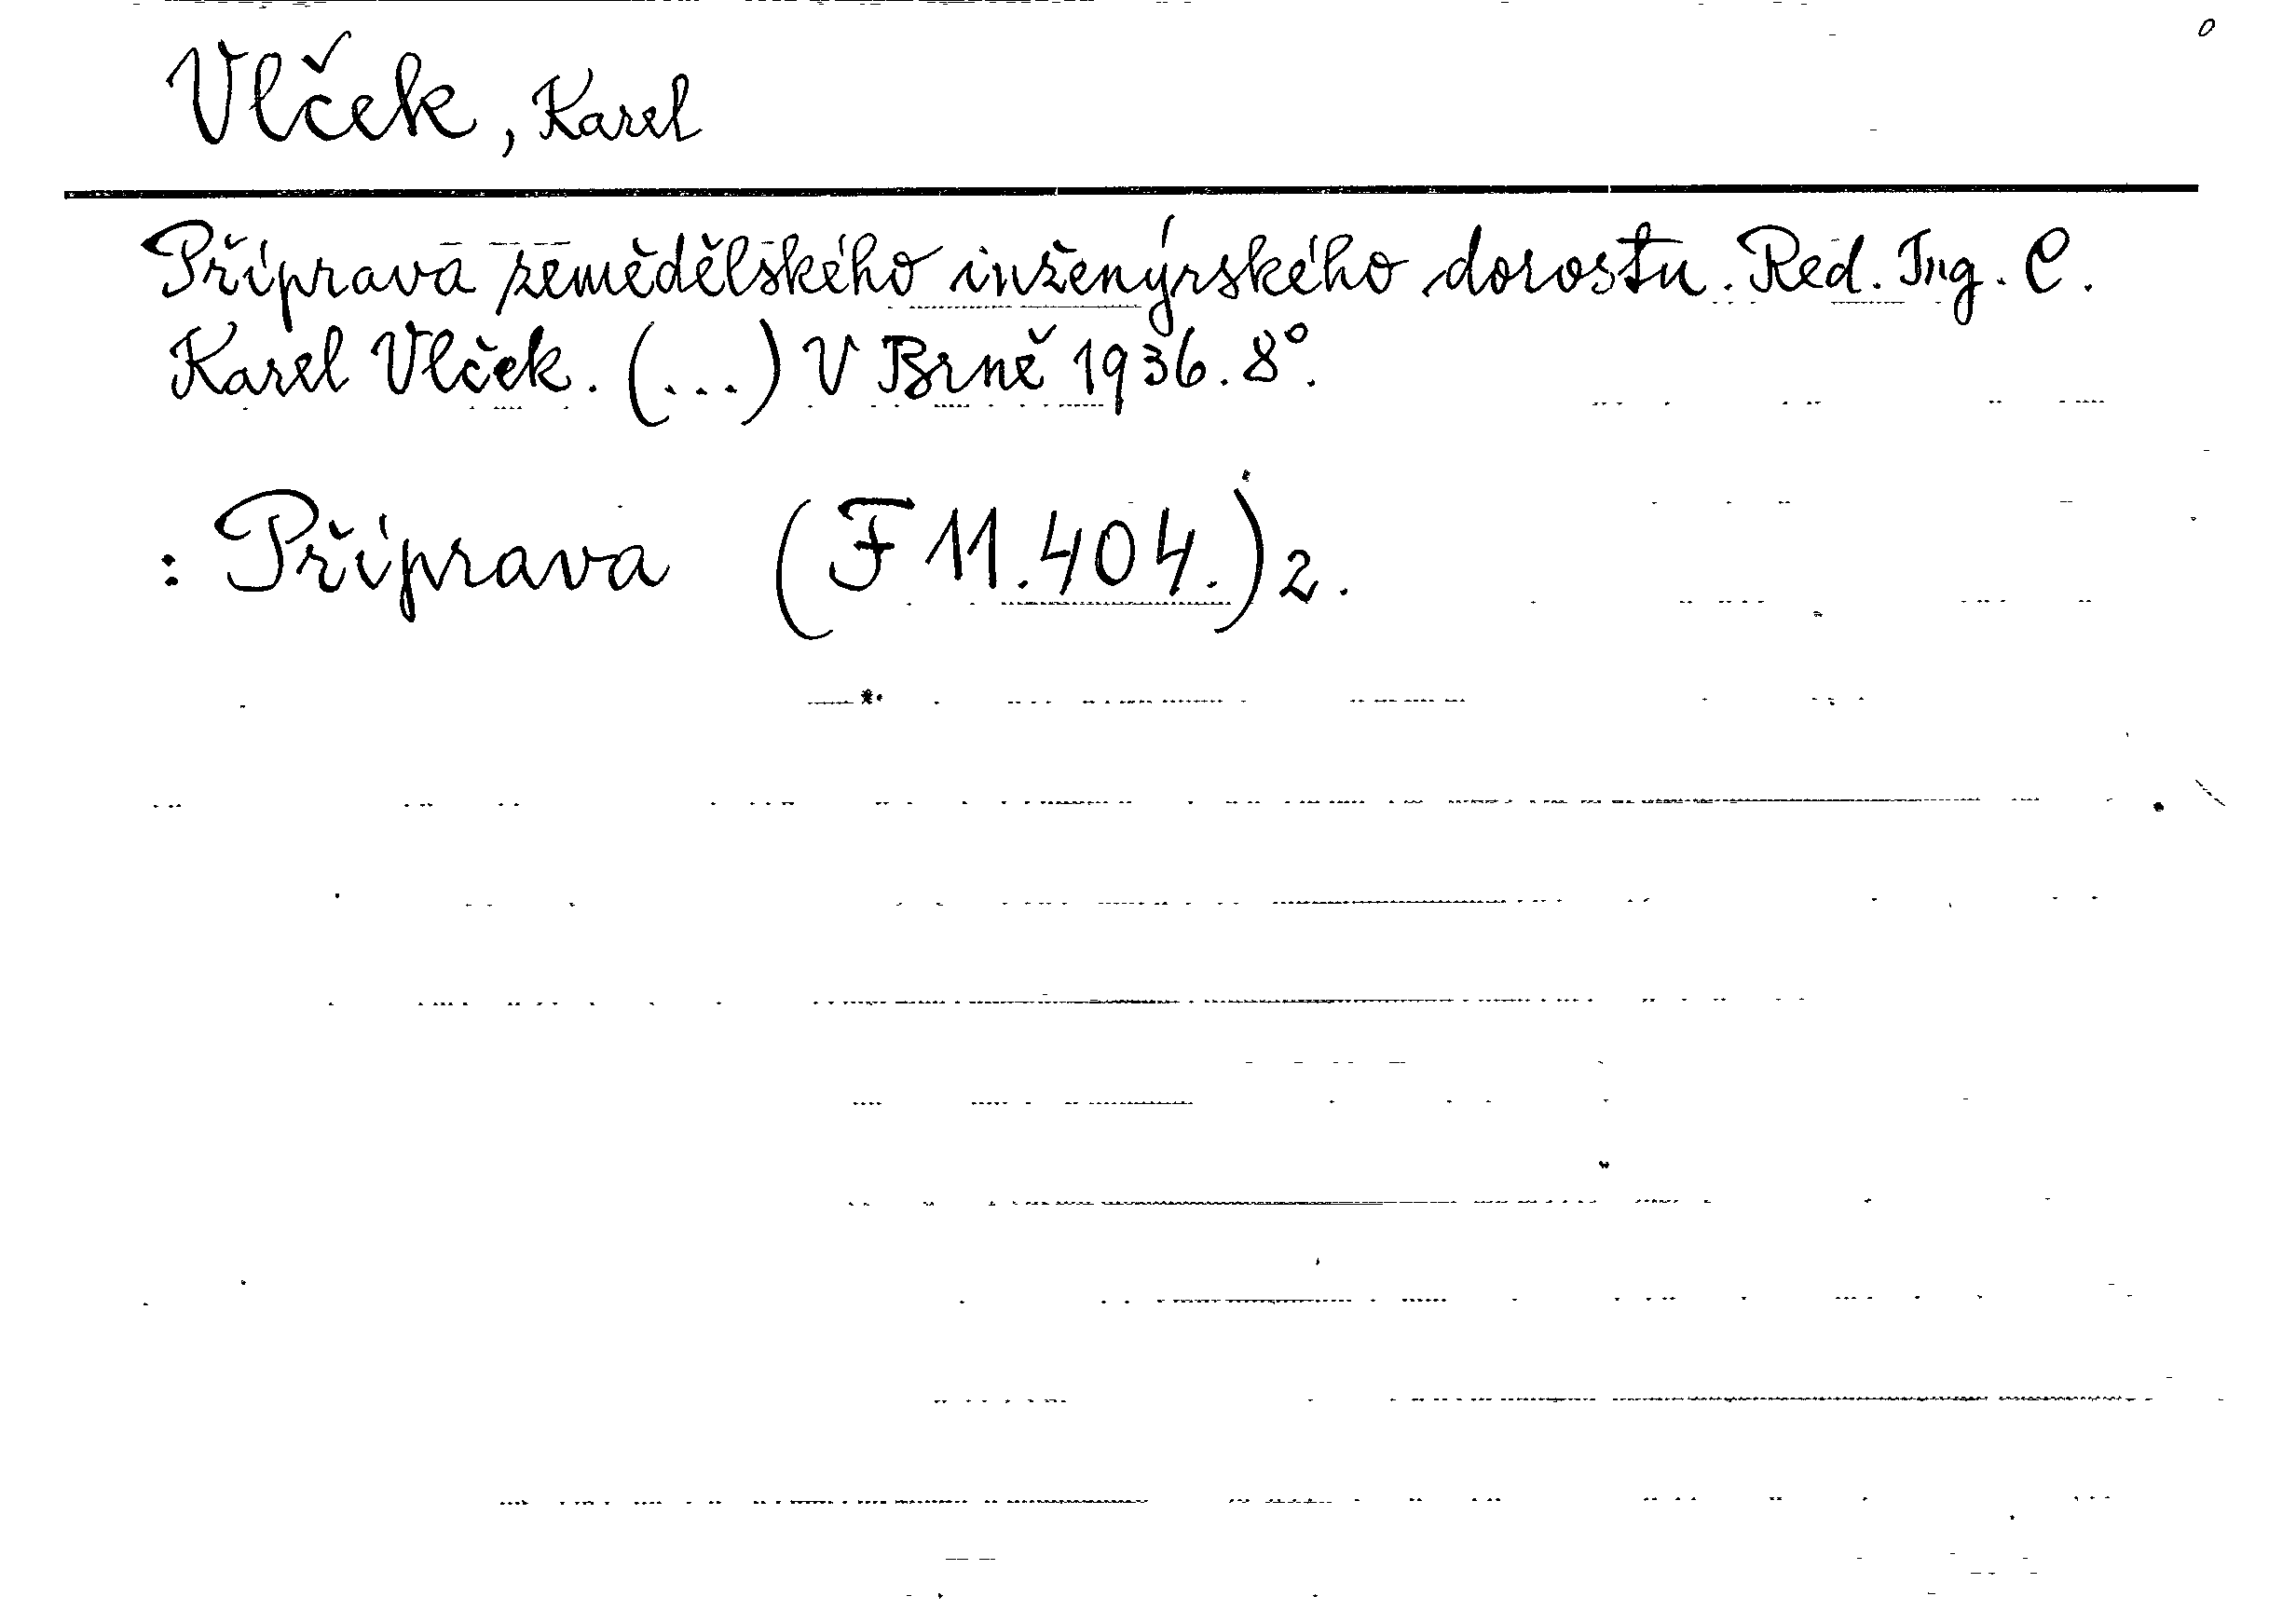 Vlček, Karel
Příprava zemědělského inženýrského dorostu. Red. Ing. C.
Karel Vlček. (...) V Brně 1936. 8°.
: Příprava (F 11.404.) 2.